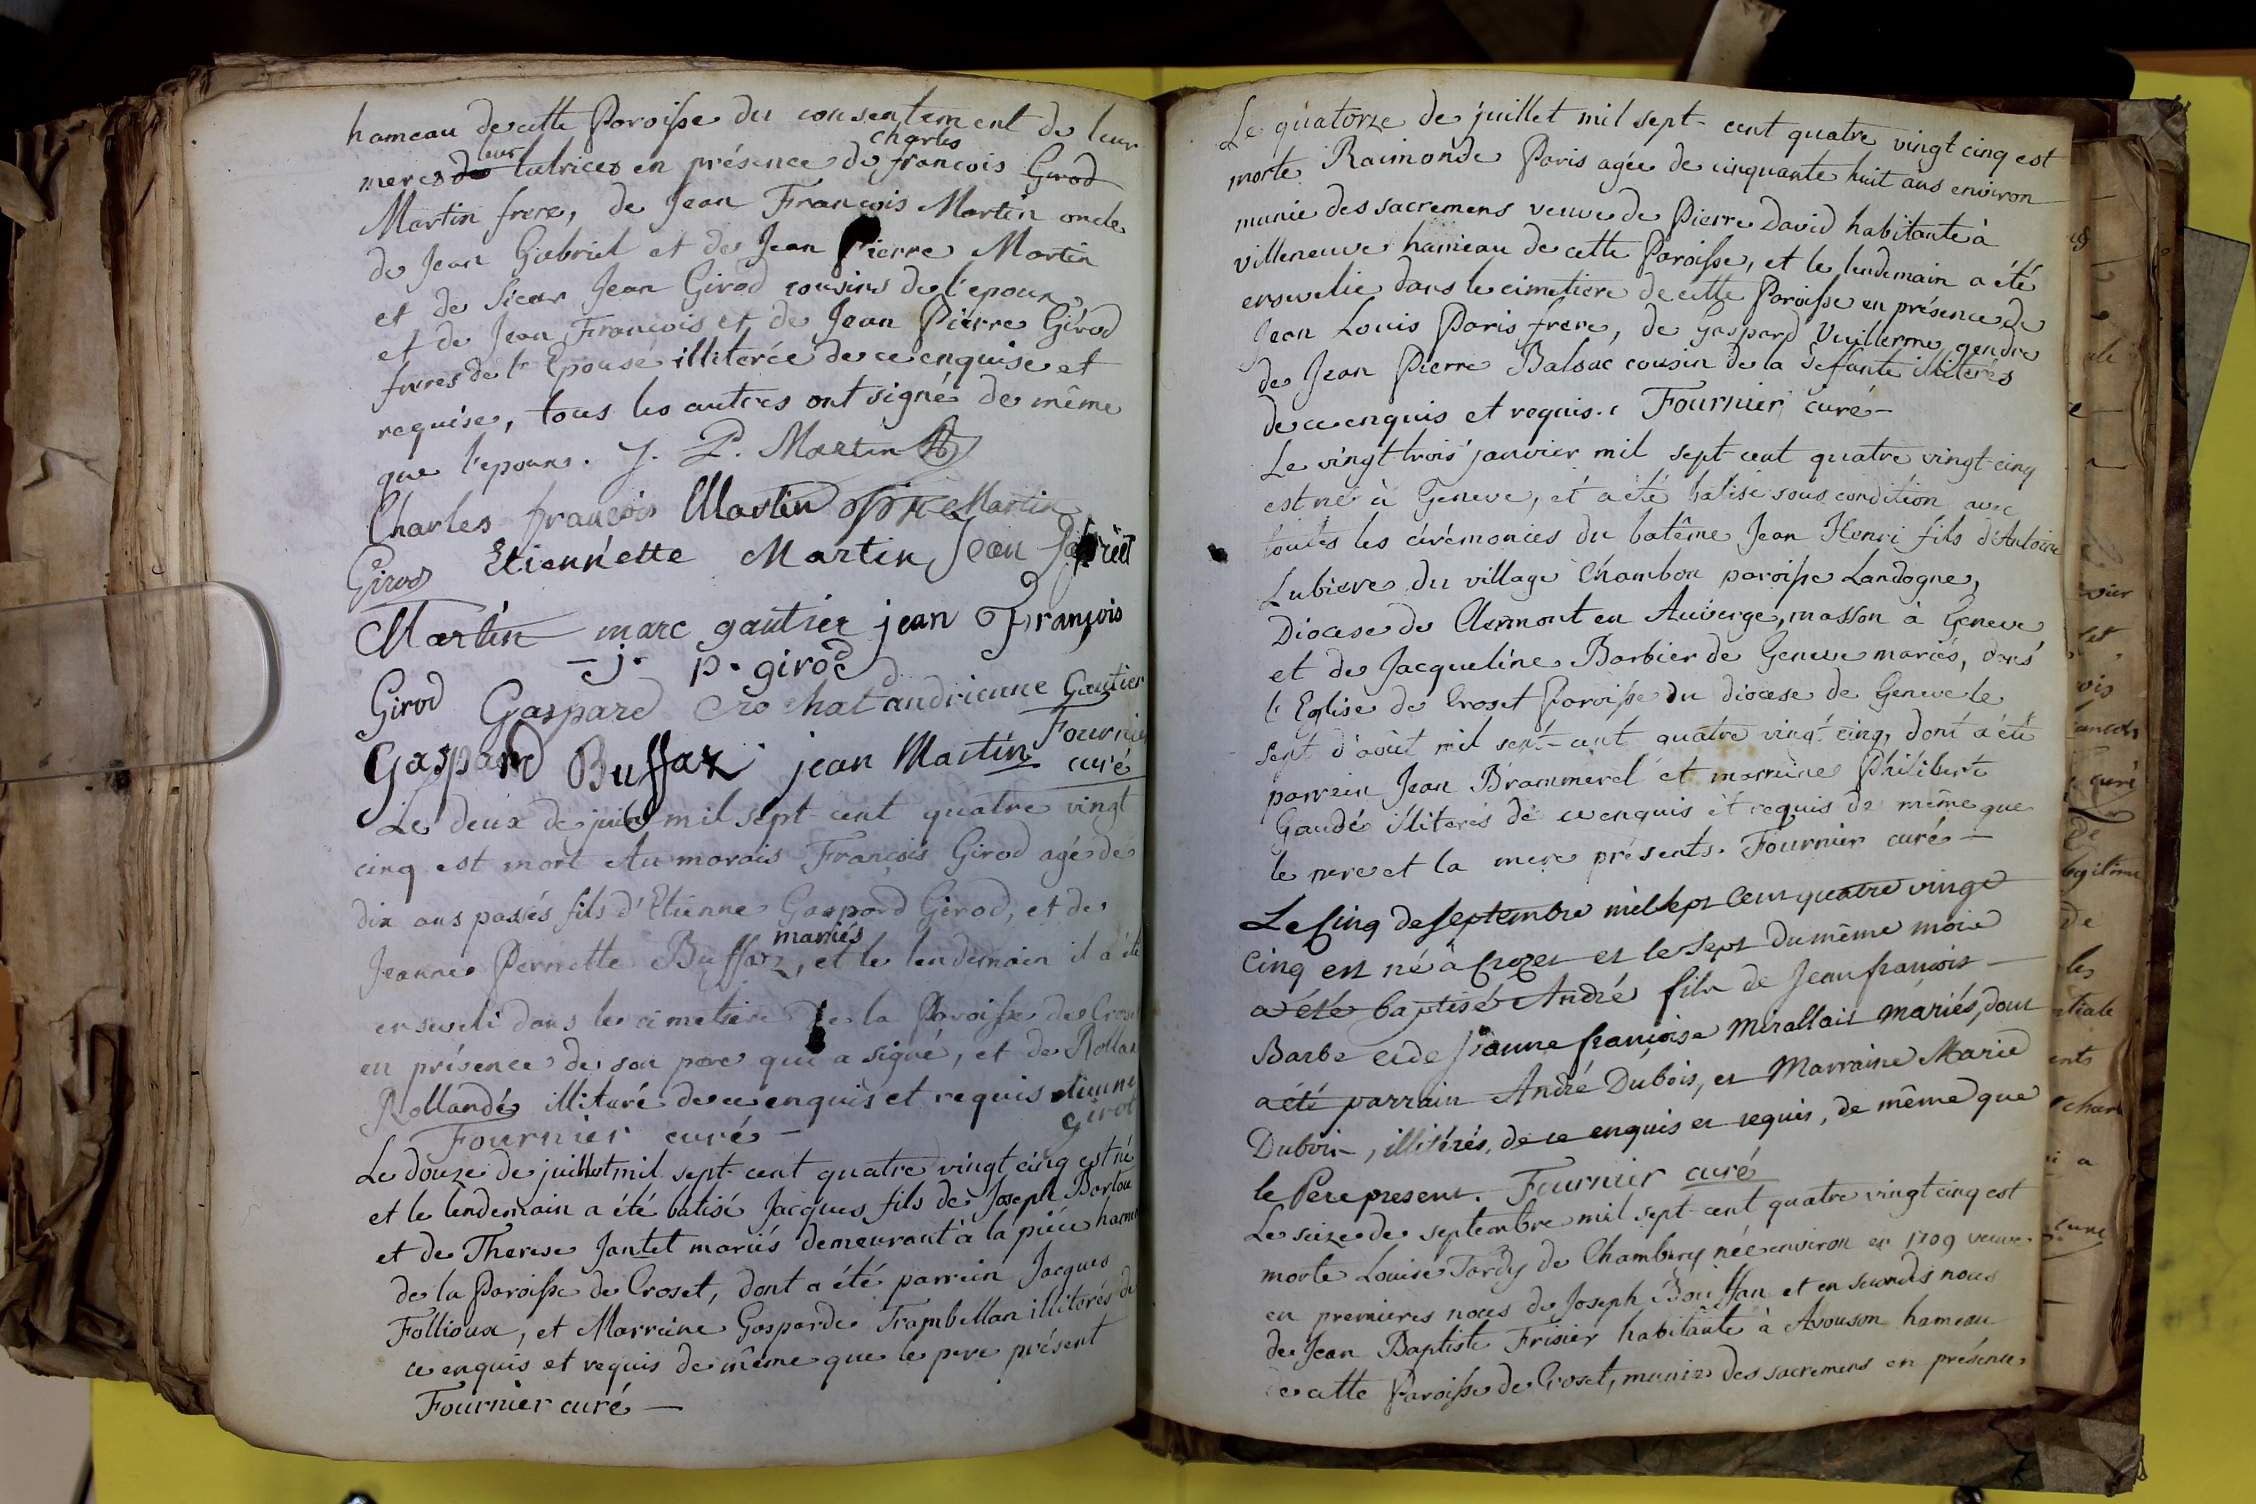 hameau de cette Paroisse du consentement de leur
meres des leur tutrices en présence de charles francois Girod
Martin frere, de Jean François Martin oncle
de Jean Gabriel et de Jean Pierre Martin
et de Sieur Jean Girod cousins de l'epoux
et de Jean François et de Jean Pierre Girod
freres de l'Epouse illiterée de ce enquise et
requise, tous les autres ont signé de même
que l'epoux. J. P. Martin
Charles françois Martin Martin
Girod Etiennette Martin Jean
Martin marc gautier jean François
- j. p. girod
Girod Gaspard Crochat andrienne Gautier
Gaspard Buffaz jean Martin Fournier
curé
Le deux de juin mil sept-cent quatre vingt
cinq est mort Au marais François Girod agé de
dix ans passés fils d'Etienne Gaspard Girod, et de
Jeanne Pernette Buffaz mariés, et le lendemain il a été
enseveli dans le cimetiere de la Paroisse de Croset
en présence de son pere qui a signé, et de Rolland
Rollandés illituré de ce enquis et requis etienne
Fournier curé - girod
Le douze de juillet mil sept-cent quatre vingt cinq est né
et le lendemain a été batisé Jacques fils de Joseph Barlou
et de Therese Jantet mariés demeurant à la piéce hameau
de la Paroisse de Croset, dont a été parrein Jacques
Follioux, et Marreine Gasparde Trambellan illiterés de
ce enquis et requis de même que le pere présent
Fournier curé -
Le quatorze de juillet mil sept-cent quatre vingt cinq est
morte Raimonde Paris agée de cinquante huit ans environ
munie des sacremens veuve de Pierre David habitante à
villeneuve hameau de cette Paroisse, et le lendemain a été
ensevelie dans le cimetiere de cette Paroisse en présence de
Jean Louis Paris frere, de Gaspard Vuillerme gendre
de Jean Pierre Balsac cousin de la deffunte illiterés
de ce enquis et requis. Fournier curé -
Le vingt-trois janvier mil sept-cent quatre vingt-cinq
est né à Geneve, et a été batisé sous condition avec
toutes les cérémonies du batême Jean Henri fils d'Antoine
Lubiere du village Chambon paroisse Landogne,
Diocese de Clermont en Auverge, masson à Geneve
et de Jacqueline Barbier de Geneve mariés, dans
l'Eglise de Croset Paroisse du diocese de Geneve le
sept d'août mil sept-cent quatre vingt cinq, dont a été
parrein Jean Brammerel et marreine Philiberte
Gaudé illiterés de ce enquis et requis de même que
le pere et la mere présents. Fournier curé -
Le Cinq de Septembre mil sept Cent quatre vingt
Cinq est né à Crozet et le Sept du même mois
a été baptisé André fils de Jean françois
Barbe et de Jeanne françoise Mirallait mariés, dont
a été parrain André Dubois, et Marraine Marie
Dubois, illitérés, de ce enquis et requis, de même que
le Pere present. Fournier curé
Le seize de septembre mil sept-cent quatre vingt cinq est
morte Louise Tardy de Chambery née environ en 1709 veuve
en premieres noces de Joseph Bouffan et en secondes noces
de Jean Baptiste Frisier habitante à Avouson hameau
de cette Paroisse de Croset, munie des sacremens en présence